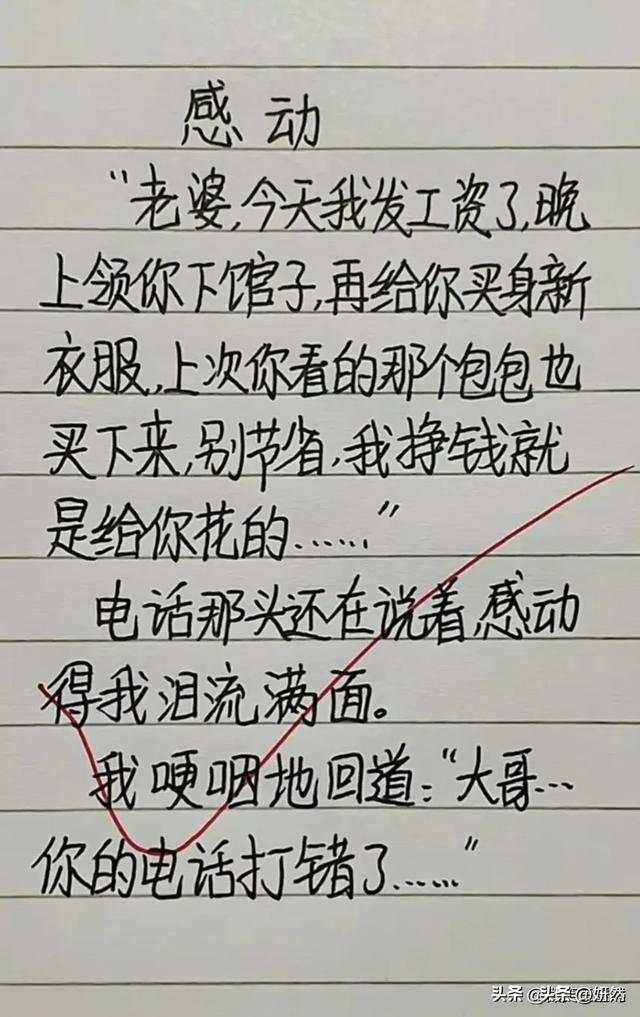 感动
“老婆,今天我发工资了,晚
上领你下馆子,再给你买身新
衣服,上次你看的那个包包也
买下来,别节省,我挣钱就
是给你花的……”
电话那头还在说着,感动
得我泪流满面。
我哽咽地回道:“大哥…
你的电话打错了……”
头条 @妍然